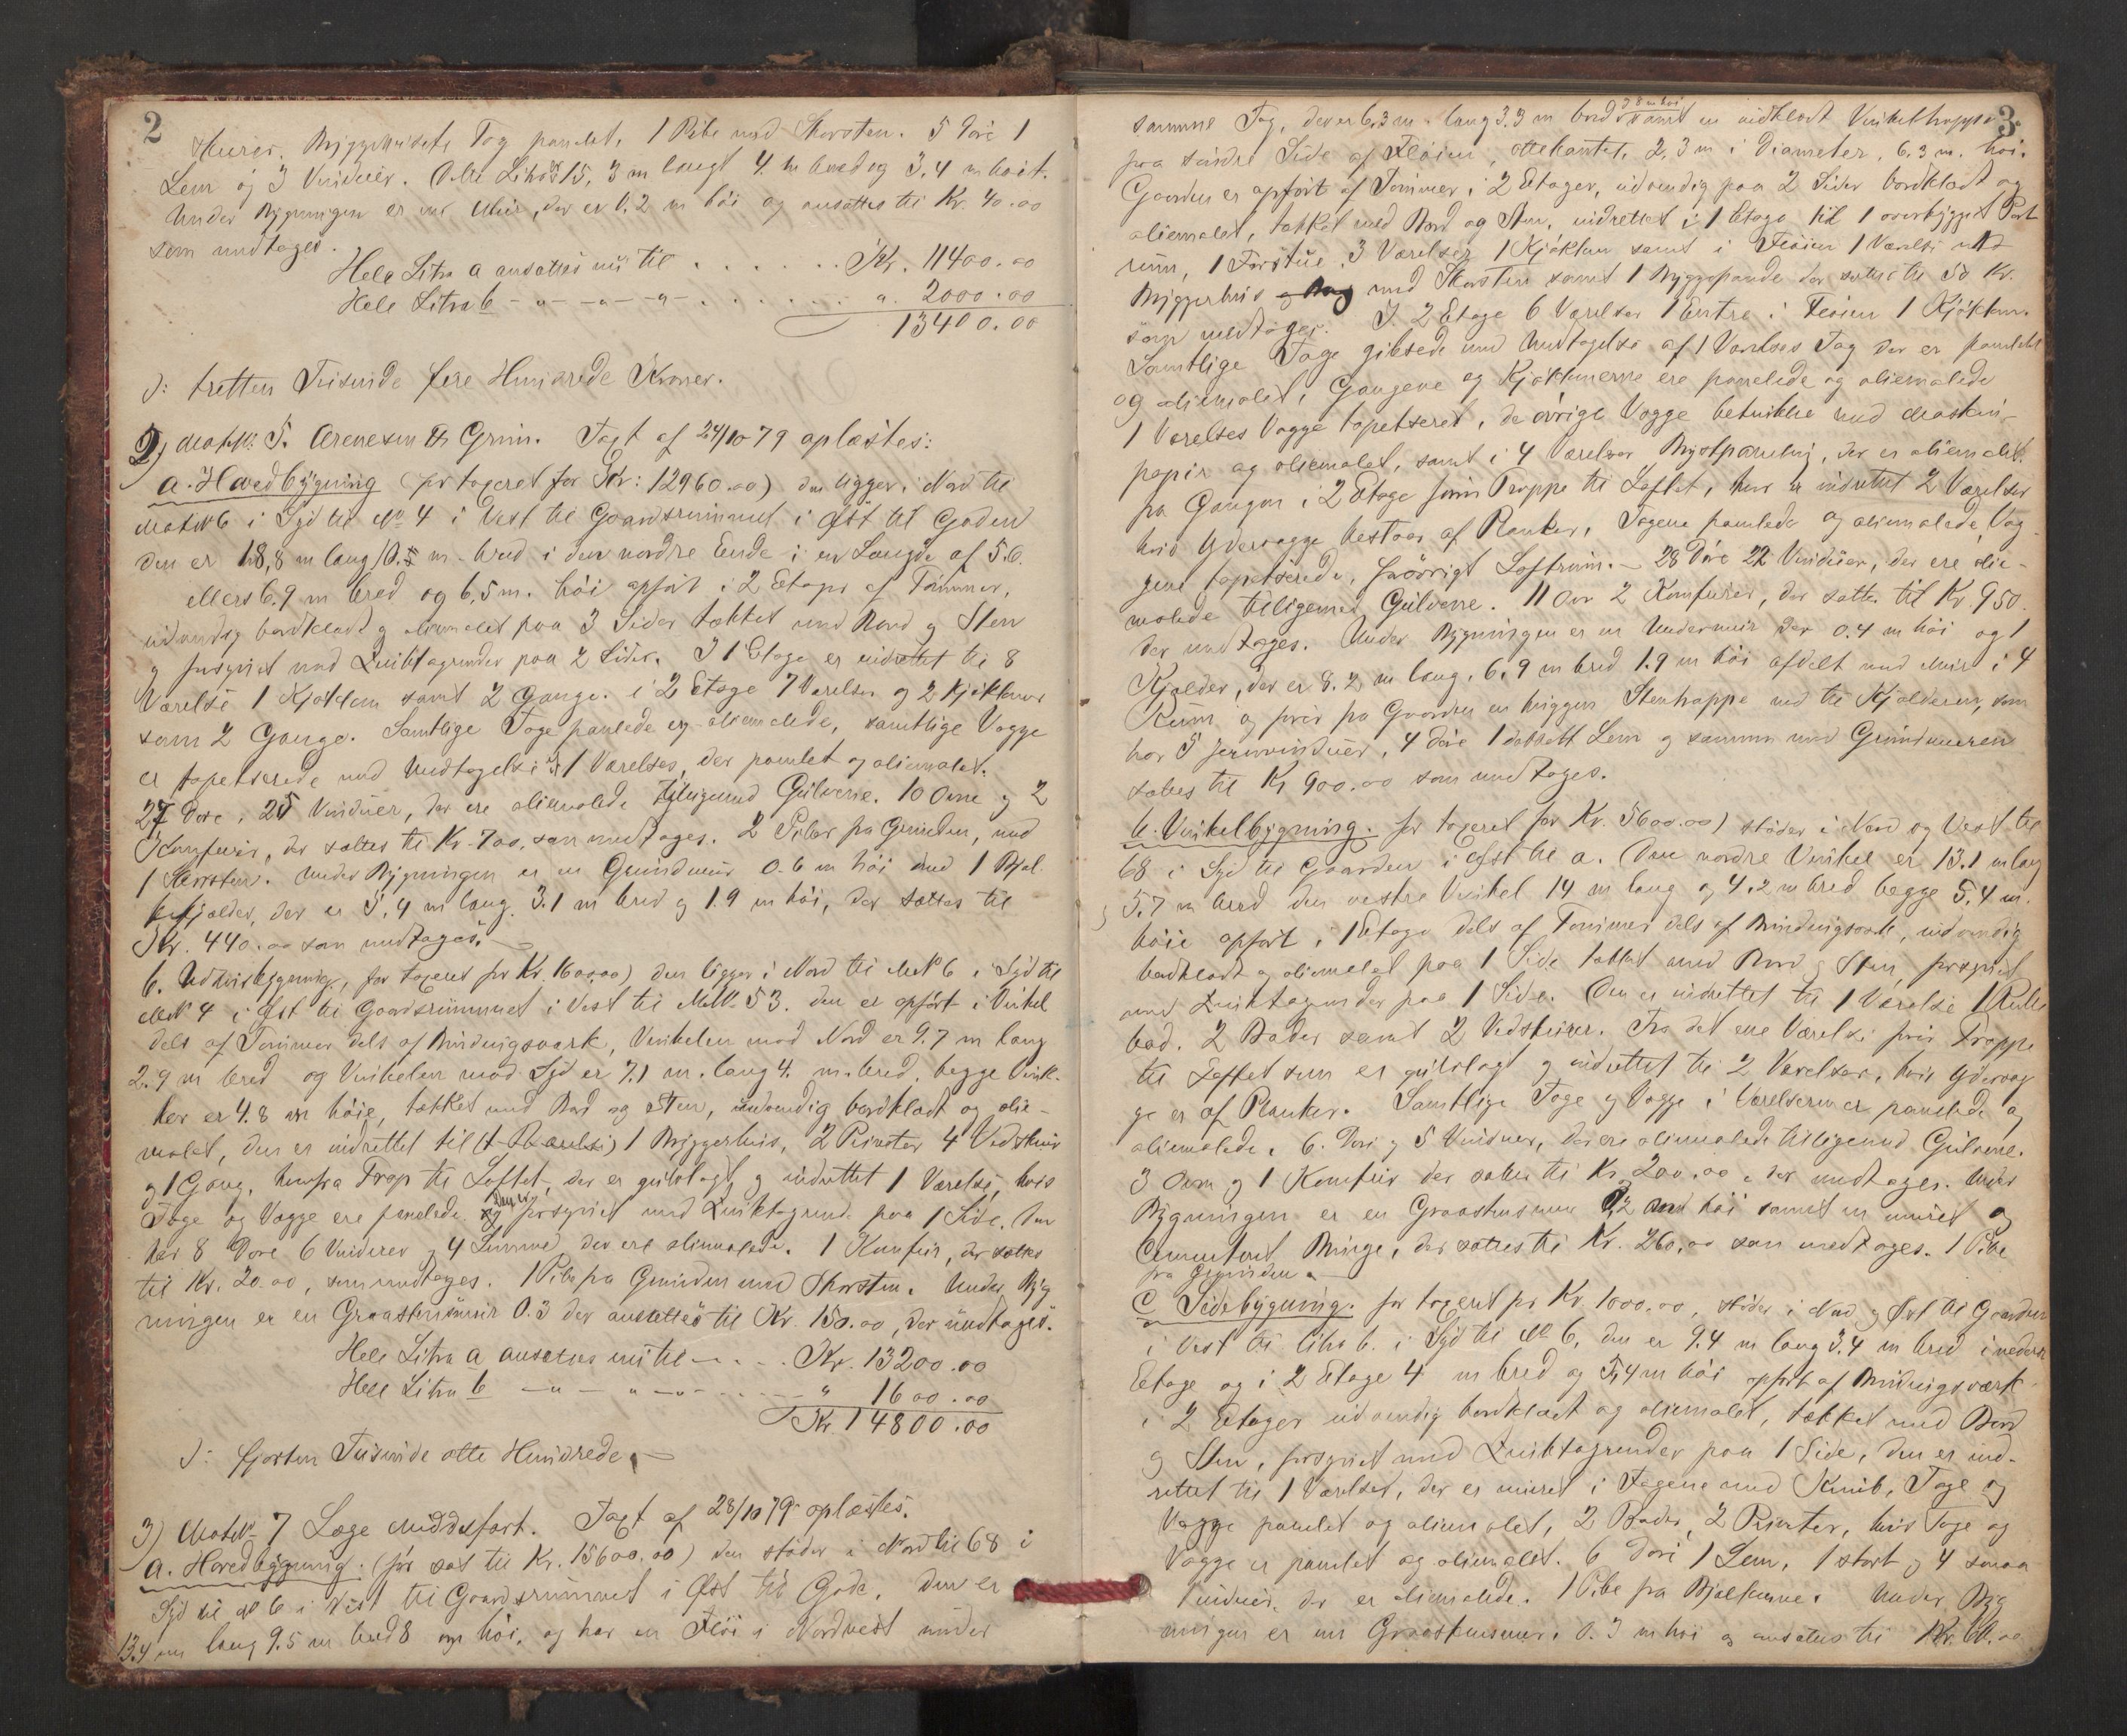 2
Murer. Bryggerhusets Tag panelet, 1 Pibe med Skorsten. 5 Döre 1
Lem og 3 Vinduer. Dette Litra 15,3 m langt 4. m bred og 3,4 m höit.
Under Bygningen er en Muur, der er 0,2 m höi og ansættes til Kr. 40.00
som undtages.
Hele Litra a ansættes nu til . . . . . . Kr. 11400.00
Hele Litra b - " - " - " - . . . . . . " 2000.00
13400.00
ɔ: tretten Tusinde fire Hundrede Kroner.
2) Mat.N: 5. Arenesen Grim. Taxt af 24/10 79 oplæstes:
a. Hovedbygning (för taxeret for Kr: 12960.00) den ligger i Nord til
Mat.N 6 i Syd til No 4 i Vest til Gaardsrummet i Öst til Gaden
den er 18,8 m lang 10.5 m. bred i den nordre Ende i en Længde af 5.6.
ellers 6.9 m bred og 6,5 m. höi opfört i 2 Etager af Tömmer,
udvendig bordklædt og oliemalet paa 3 Sider tækket med Bord og Sten
og forsynet med Qvistagrender paa 2 Sider. I 1 Etage er indrettet til 8
Værelse 1 Kjökken samt 2 Gange. i 2 Etage 7 Værelser og 2 Kjökkener
samt 2 Gange. Samtlige Tage panlede og oliemalede, samtlige Vægge
er tapetserede med Undtagelse af 1 Værelses, der panlet og oliemalet.
27 Döre, 25 Vinduer, der ere oliemalede tilligemed Gulvene. 10 Ovne og 2
Komfurer, der sættes til Kr. 700. som undtages. 2 Piber fra Grunden, med
1 Skorsten. Under Bygningen er en Grundmur 0.6 m höi med 1 Bjel-
kekjelder, der er 5,4 m lang 3.1 m bred og 1.9 m höi, der sættes til
Kr. 440.00 som undtages.
b. Udhusbygning, (för taxeret for Kr. 1600.00) den ligger i Nord til Mat.N 6 i Syd til
Mat.N 4 i Öst til Gaardsrummet i Vest til Mat.N. 53. den er opfört i Vinkel
dels af Tömmer dels af Bindingsværk, Vinkelen mod Nord er 9.7 m lang
2.9 m bred og Vinkelen mod Syd er 7.1 m. lang 4. m. bred, begge Vink-
ler er 4.8 m höie, tækket med Bord og Sten, udvendig bordklædt og olie-
malet, den er indrettet til (1 Værelse) 1 Bryggerhus, 2 Privater 4 Vedskur
og 1 Gang, herfra Trap til Loftet, der er gulvlagt og indrettet 1 Værelse, hvis
Tage og Vægge ere panelede. den er forsynet med Qvistagrend paa 1 Side. Den
har 8 Döre 6 Vinduer og 4 Lemme der ere oliemalede. 1 Komfur, der sættes
til Kr. 20.00, som undtages. 1 Pibe fra Grunden med Skorsten. Under Byg
ningen er en Graastensmur 0.3 der ansættes til Kr. 150.00, der undtages.
Hele Litra a ansættes nu til - . . . Kr. 13200.00
Hele Litra b - " - " - " - . . . . " 1600.00
Kr 14800.00
ɔ: fjorten Tusinde otte Hundrede.
3) Mat.N. 7 Læge Middelfart. Taxt af 28/10 79 oplæstes.
a. Hovedbygning: (för sat til Kr. 15600.00) den stöder i Nord til 68 i
Syd til No 6 i Vest til Gaardsrummet i Öst til Gade. den er
13.4 m lang 9.5 m bred 8 m höi, og har en Flöi i Nordvest under
3
samme Tag, der er 6,3 m. lang 3.3 m bred samt en indklædt Vinkeltrappe
paa söndre Side af Flöien, ottekantet, 2,3 m i Diameter, 6,3 m. höi.
Gaarden er opfört af Tömmer i 2 Etager, udvendig paa 2 Sider bordklædt og
oliemalet, tækket med Bord og Sten, indrettet i 1 Etage til 1 overbygget Port
rum, 1 Forstue, 3 Værelser 1 Kjökken samt i Flöien 1 Værelse med
Bryggerhus med Skorsten samt 1 Bryggepande der sættes til 50 Kr.
som undtages. I 2 Etage 6 Værelser 1 Entre i Flöien 1 Kjökken.
Samtlige Tage gibsede med Undtagelse af 1 Værelses Tag der er panelet
og oliemalet, Gangene og Kjökkenerne ere panelede og oliemalede
1 Værelses Vægge tapetseret, de övrige Vægge betrukne med Maskin-
papir og oliemalet, samt i 4 Værelser Brystpaneling, der er oliemalet.
fra Gangen i 2 Etage förer Trappe til Loftet, hvor er indrettet 2 Værelser
hvis Ydervægge bestaar af Planker, Tagene panlede og oliemalede, Væg-
gene tapetserede, forövrigt Loftrum. - 28 Döre 22 Vinduer, der ere olie-
malede tilligemed Gulvene. 11 Ovne 2 Komfurer, der sættes til Kr. 950.
der undtages. Under Bygningen er en Undermur der 0.4 m höi og 1
Kjælder, der er 8.2 m lang, 6,9 m bred 1.9 m höi afdelt med Mur i 4
Rum og förer fra Gaarden en huggen Stentrappe ned til Kjælderen, som
har 5 Jernvinduer, 4 döre 1 dobbelt Lem og sammen med Grundmuren
sættes til Kr 900.00 som undtages.
b. Vinkelbygning. för taxeret for Kr. 5600.00) stöder i Nord og Vest til
68 i Syd til Gaarden i Öst til a. Den nordre Vinkel er 13.1 m lang
5.7 m bred den vestre Vinkel 14 m lang og 4.2 m bred begge 5.4 m.
höie opfört i 1 Etage dels af Tömmer dels af Bindingsværk, udvendig
bordklædt og oliemalet paa 1 Side tækket med Bord og Sten, forsynet
med Qvistagrender paa 1 Side. Den er indrettet til 1 Værelse 1 Rulle
bod. 2 Boder samt 2 Vedskurer. Fra det ene Værelse förer Trappe
til Loftet som er gulvlagt og indrettet til 2 Værelser, hvis Ydervæg
ge er af Planker. Samtlige Tage og Vægge i Værelserne er panelede og
oliemalede. 6 Döre og 5 Vinduer, der ere oliemalede tilligemed Gulvene.
3 Ovne og 1 Komfur der sættes til Kr 200.00. der undtages. Under
Bygningen er en Graastensmur 0,2 m höi samt en muret og
Cementeret Binge, der sættes til Kr. 260.00 som undtages. 1 Pibe
fra Grunden.
C Sidebygning. för taxeret for Kr. 1000.00, stöder i Nord og Öst til Gaarden
i Vest til Litra b. i Syd til No 6, den er 9.4 m lang 3.4 m bred i nederste
Etage og i 2 Etage 4 m bred og 5,4 m höi opfört af Bindingsværk
i 2 Etager udvendig bordklædt og oliemalet, tækket med Bord
og Sten, forsynet med Qvistagrender paa 1 Side, den er ind-
rettet til 1 Værelse, der er muret i Fagene med Knub, Tage og
Vægge panelet og oliemalet, 2 Boder, 2 Privater, hvis Tage og
Vægge er panelet og oliemalet. 6 Döre 1 Lem, 1 stort og 4 smaa
Vinduer, der er oliemalede. 1 Pibe fra Bjelkerne. Under Byg
ningen er en Graastensmur. 0.3 m höi og ansættes til Kr. 60.00